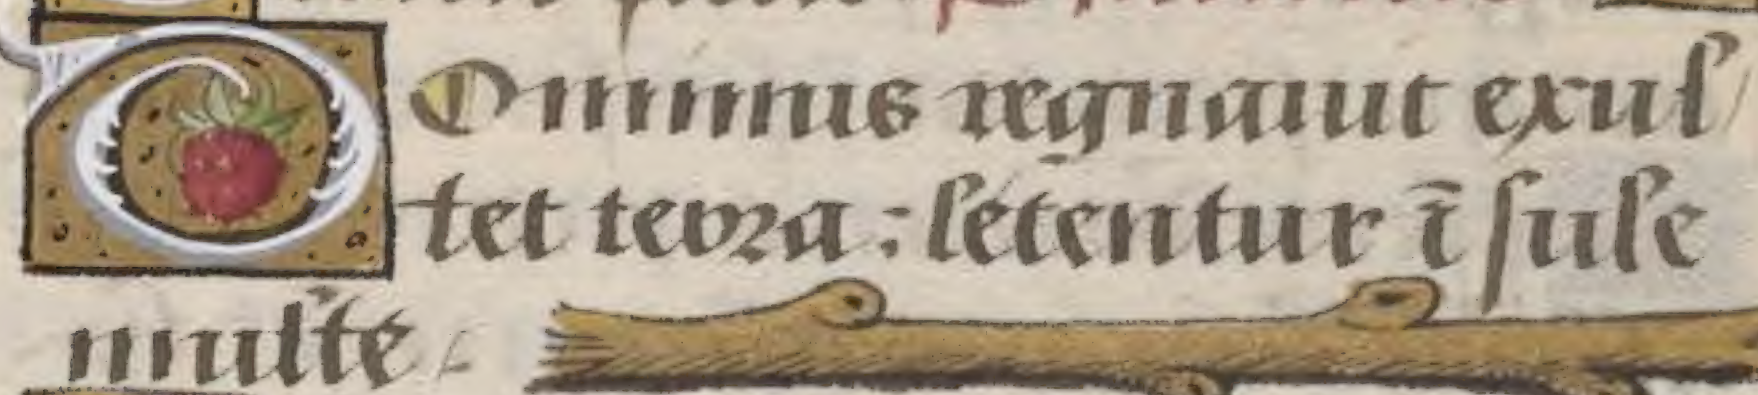 DOminus regnauit exul/
tet terra : letentur ī sule
multe